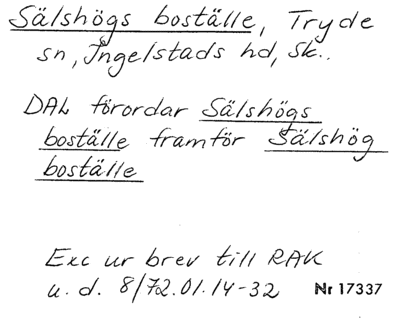 Sälshögs boställe, Tryde
sn, Ingelstads hd, Sk..
DAL förordar Sälshögs
boställe framför Sälshög
boställe
Exc ur brev till RAK
u. d. 8/72.01.14-32 Nr 17337